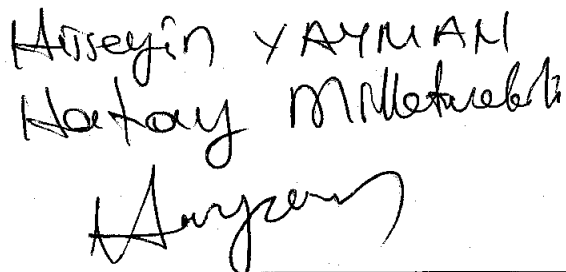 Hüseyin YAYMAN
Hatay Milletvekili